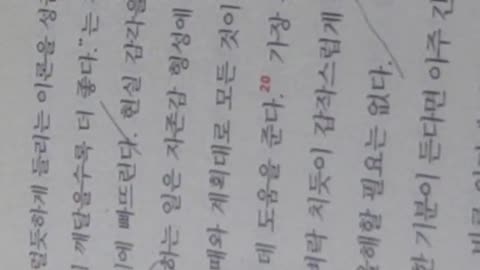 럴듯하게 들리는 이론을
깨달을수록 더 좋다."는
에 빠뜨린다. 현실 감각을
하는 일은 자존감 형성에
계획대로 모든 것이
데 도움을 준다.20 가장
벼락 치듯이 갑작스럽게
해할 필요는 없다.
기분이 든다면 아주